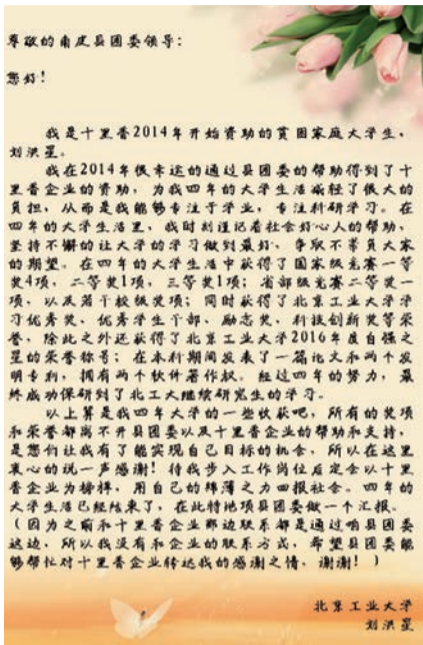 尊敬的南皮县团委领导：
您好！
我是十里香2014年开始资助的贫困家庭大学生，
刘洪星。
我在2014年很幸运的通过县团委的帮助得到了十
里香企业的资助，为我四年的大学生活减轻了很大的
负担，从而是我能够专注于学业，专注科研学习。在
四年的大学生活里，我时刻谨记着社会好心人的帮助，
坚持不懈的让大学的学习做到最好，争取不带负大家
的期望。在四年的大学生活中获得了国家级竞赛一等
奖4项，二等奖1项，三等奖1项；省部级竞赛二等奖一
项，以及若干校级奖项；同时获得了北京工业大学学
习优秀奖、优秀学生干部、励志奖、科技创新奖等荣
誉，除此之外还获得了北京工业大学2016年度自强之
星的荣誉称号；在本科期间发表了一篇论文和两个发
明专利，拥有两个软件著作权。经过四年的努力，最
终成功保研到了北工大继续研究生的学习。
以上算是我四年大学的一些收获吧，所有的奖项
和荣誉都离不开县团委以及十里香企业的帮助和支持，
是您们让我有了能实现自己目标的机会，所以在这里
衷心的说一声感谢！待我步入工作岗位后定会以十里
香企业为榜样，用自己的绵薄之力回报社会。四年的
大学生活已经结束了，在此特地项县团委做一个汇报。
（因为之前和十里香企业那边联系都是通过咱县团委
这边，所以我没有和企业的联系方式，希望县团委能
够帮忙对十里香企业转达我的感谢之情，谢谢！）
北京工业大学
刘洪星